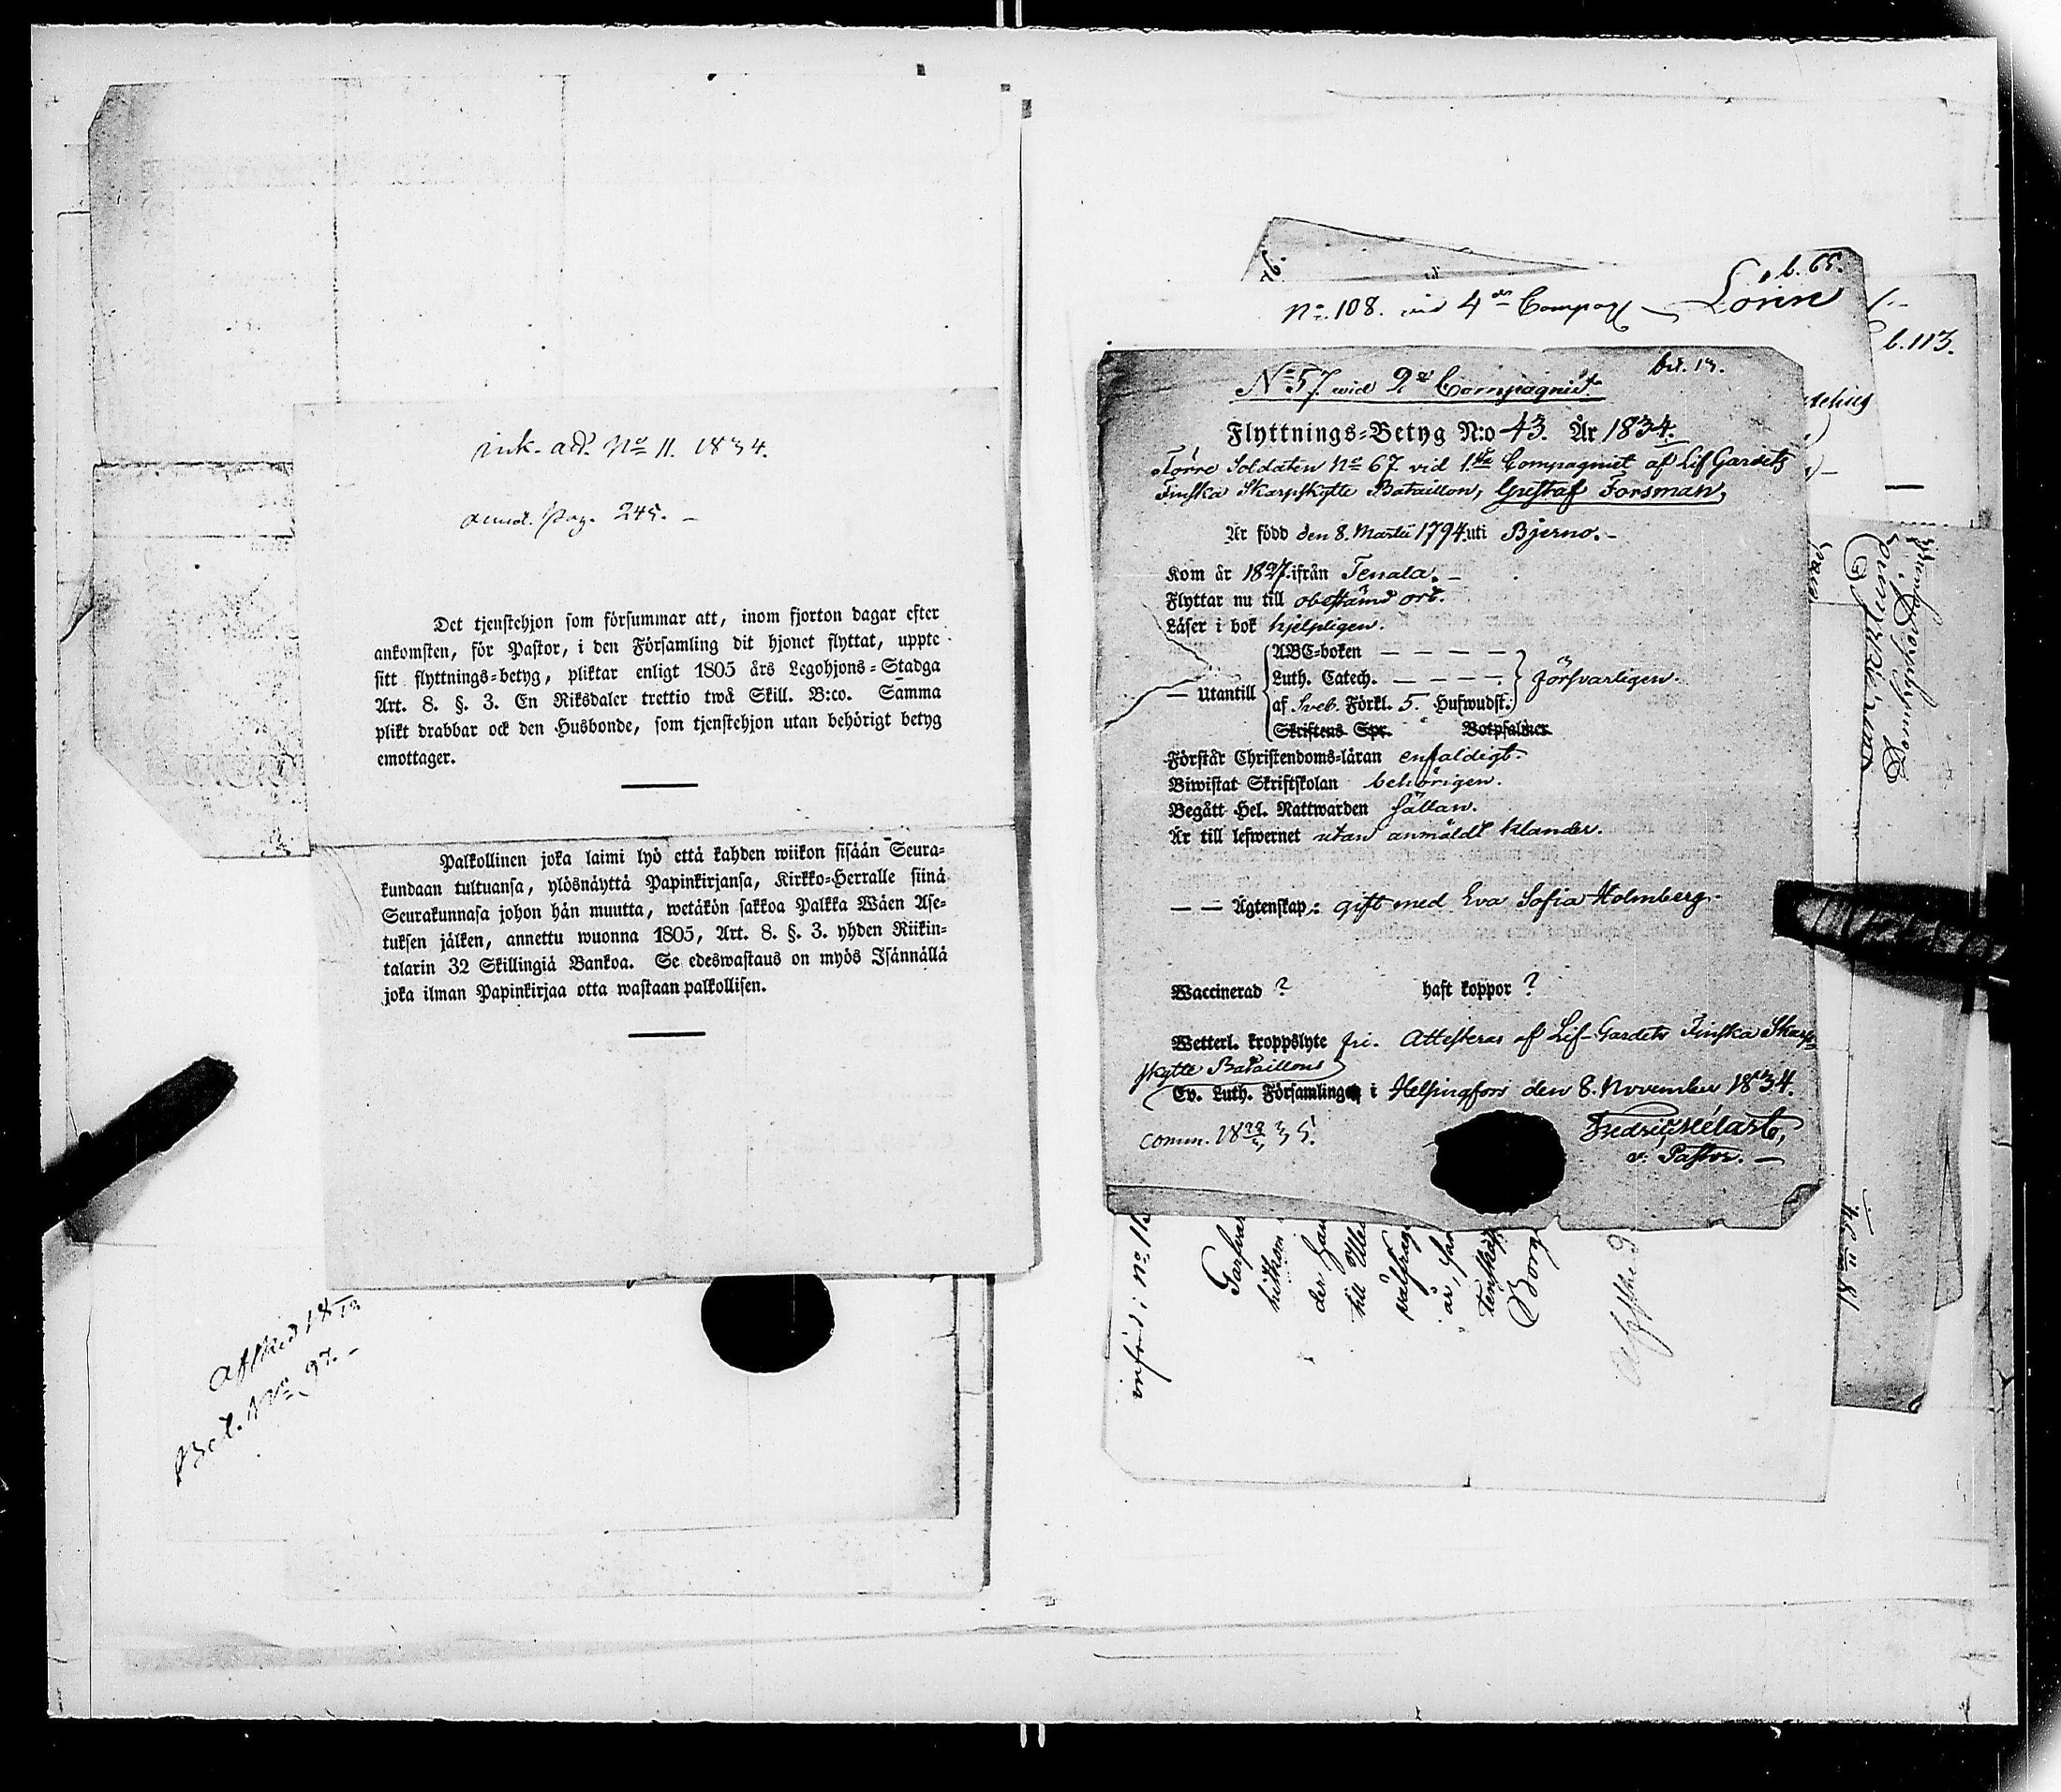 ink. att. No 11. 1834.
annot. Pag. 245. –
Det tjenstehjon som försummar att, inom fjorton dagar efter
ankomsten, för Pastor, i den Församling dit hjonet flyttat, uppte
sitt flyttnings=betyg, pliktar enligt 1805 års Legohjons=Stadga
Art. 8. §. 3. En Riksdaler trettio twå Skill. B:co. Samma
plikt drabbar ock den Husbonde, som tjenstehjon utan behörigt betyg
emottager.
Palkollinen joka laimi lyö että kahden wiikon sisään Seura=
kundaan tultuansa, ylösnäyttä Papinkirjansa, Kirkko=Herralle siinä
Seurakunnasa johon hän muutta, wetäkön sakkoa Palkka Wäen Ase=
tuksen jälken, annettu wuonna 1805, Art. 8. §. 3. yhden Riikin=
talarin 32 Skillingiä Bankoa. Se edeswastaus on myös Isännällä
joka ilman Papinkirjaa otta wastaan palkollisen.
Bet. No 97. –
b. 65.
No. 108. vid 4de Compag Lönn
b. 113.
No 57. wid 2dra Compagniet.
Flyttnings=Betyg N:o 43. År 1834.
Förre Soldaten No 67 vid 1sta Compagniet af Lif Gardets
Finska Skarpskytte Bataillon, Gustaf Forsman,
Är född den 8. Martii 1794. uti Bjerno. –
Kom år 1827. ifrån Tenala. –
Flyttar nu till obestämd ort.
Läser i bok hjelpligen.
ABC=boken – – – –
Luth. Catech. – – – –
— Utantill försvarligen.
af Sveb. Förkl. 5. Hufwudst.
Skriftens Spr. Botpsalmer
Förstår Christendoms=läran enfaldigt.
Biwistat Skriftskolan behörigen.
Begått Hel. Nattwarden sällan.
Är till lefwernet utan anmäldt klander.
— — Ägtenskap: gift med Eva Sofia Holmberg.
Waccinerad ? haft koppor ?
Wetterl. kroppslyte fri. Attesteras af Lif-Gardets Finska Skarp=
skytte Bataillons
Ev. Luth. Församling i Helsingfors den 8. November 1834.
comm. 18
v. Pastor. —